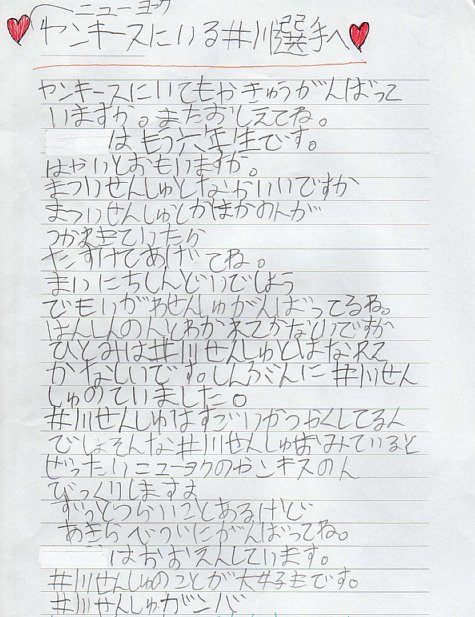 ニューヨーク
ヤンキースにいる井川選手へ
ヤンキースにいてもやきゅうがんばって
いますか。またおしえてね。
はもう六年生です。
はやいとおもいますか。
まついせんしゅとなかいいですか
まついせんしゅとかほかの人が
つかれきていったら
たすけてあげてね。
まいにちしんどいでしょう
でもいがわせんしゅがんばってるね。
はんしんの人とわかれてかなしいですか
ひとみは井川せんしゅとはなれて
かなしいです。しんぶんに井川せん
しゅのていました。
井川せんしゅはすごいかつやくしてる人
でしょそんな井川せんしゅをみていると
ぜったいニューヨクのヤンキスの人
びっくりしますよ
ずっとつらいことあるけど
あきらべづにがんばってね。
はおおえんしています。
井川せんしゅのことが大好きです。
井川せんしゅガンバ